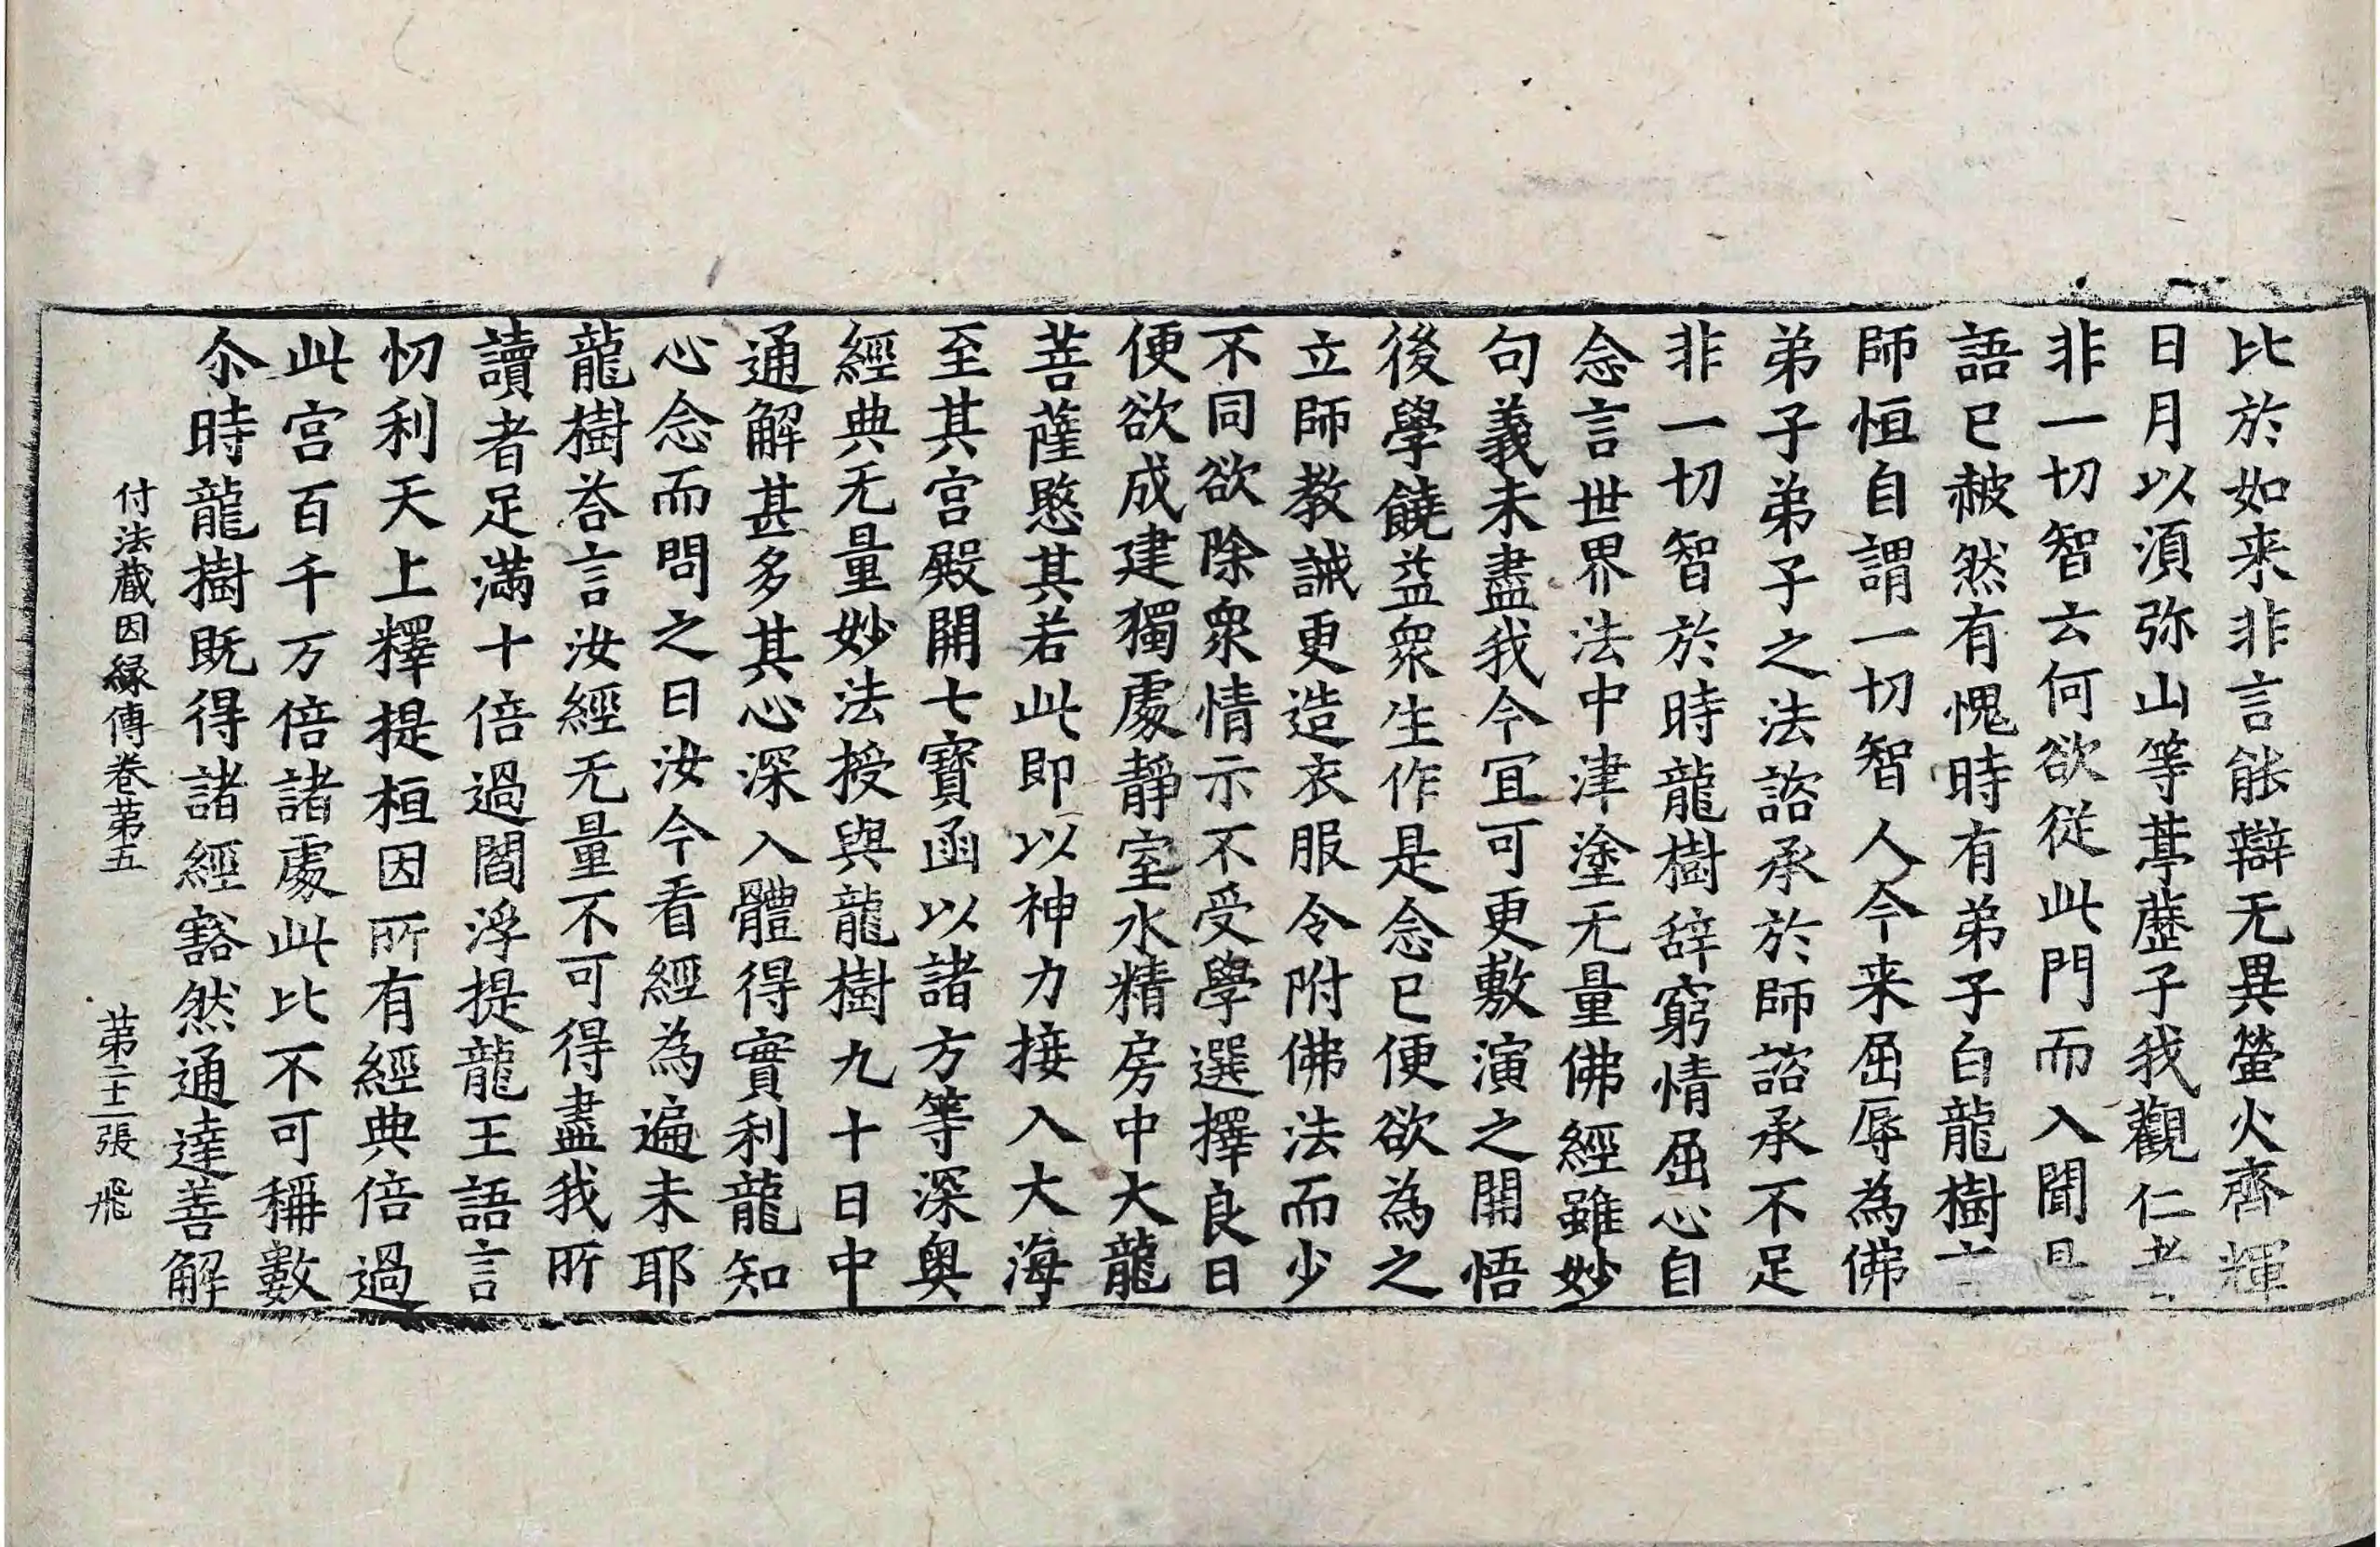 比於如来非言能辯无異螢火齊輝
日月以湏弥山等葶藶子我觀仁者
非一切智云何欲従此門而入聞是
語已赧然有愧時有弟子白龍樹言
師恒自謂一切智人今来屈辱為佛
弟子弟子之法諮承於師諮承不足
非一切智於時龍樹辝窮情屈心自
念言世界法中津塗无量佛經雖妙
句義未盡我今宜可更敷演之開悟
後學饒益衆生作是念已便欲為之
立師教誡更造衣服令附佛法而少
不同欲除衆情示不受學選擇良日
便欲成建獨處靜室水精房中大龍
菩薩愍其若此即以神力接入大海
至其宫殿開七寶函以諸方等深奥
經典无量妙法授與龍樹九十日中
通解甚多其心深入體得實利龍知
心念而問之曰汝今看經為遍未耶
龍樹荅言汝經无量不可得盡我所
讀者足滿十倍過閻浮提龍王語言
忉利天上釋提桓因所有經典倍過
此宫百千万倍諸處此比不可稱數
尒時龍樹既得諸經豁然通達善解
付法蔵因縁傳卷苐五 苐二十二張 飛